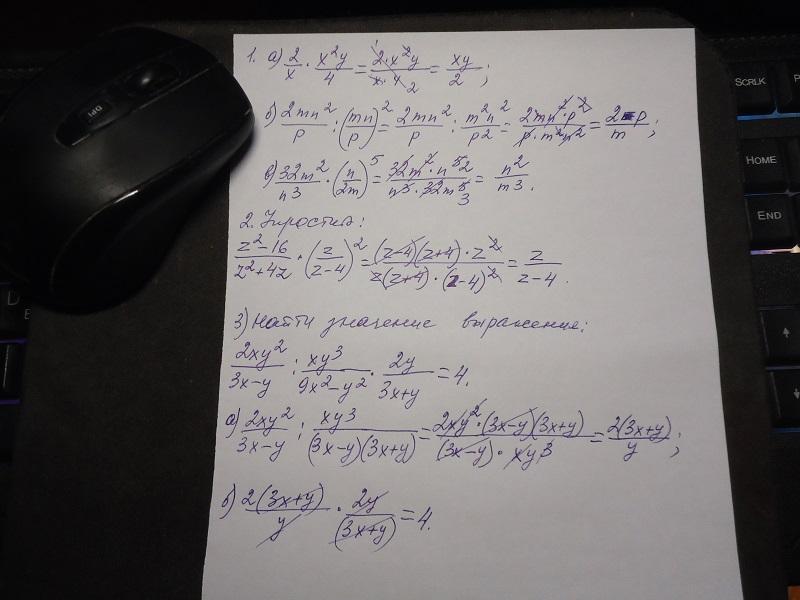 1. а) 2/x · x²y/4 = 2·x²y/x·4 = xy/2;
б) 2mn²/p : (mn/p)² = 2mn²/p : m²n²/p² = 2mn²·p²/p·m²n² = 2p/m;
в) 32m²/n³ · (n/2m)⁵ = 32m²·n⁵/n³·32m⁵ = n²/m³.
2. Упростить:
z²-16/z²+4z · (z/z-4)² = (z-4)(z+4)·z²/z(z+4)·(z-4)² = z/z-4.
3) Найти значение выражение:
2xy²/3x-y : xy³/9x²-y² · 2y/3x+y = 4.
а) 2xy²/3x-y : xy³/(3x-y)(3x+y) = 2xy²·(3x-y)(3x+y)/(3x-y)·xy³ = 2(3x+y)/y;
б) 2(3x+y)/y · 2y/(3x+y) = 4.
DPI
SCRLK
HOME
END